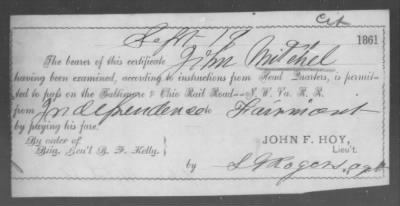 Cit
Sept 19 1861
The bearer of this certificate John Mitchel
having been examined, according to instructions from Head Quarters, is permit-
ted to pass on the Baltimore & Ohio Rail Road—N. W. Va. R. R.
from Independence to Fairmont
by paying his fare.
By order of JOHN F. HOY,
Brig. Gen'l B. F. Kelly. Lieu't.
by S Rogers, agt